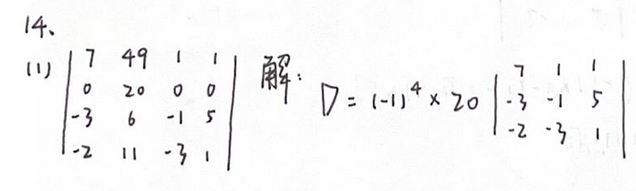 14、
(1) | 7 49 1 1 |
| 0 20 0 0 |
| -3 6 -1 5 |
| -2 11 -3 1 |
解: D = (-1)^4 × 20 | 7 1 1 |
| -3 -1 5 |
| -2 -3 1 |